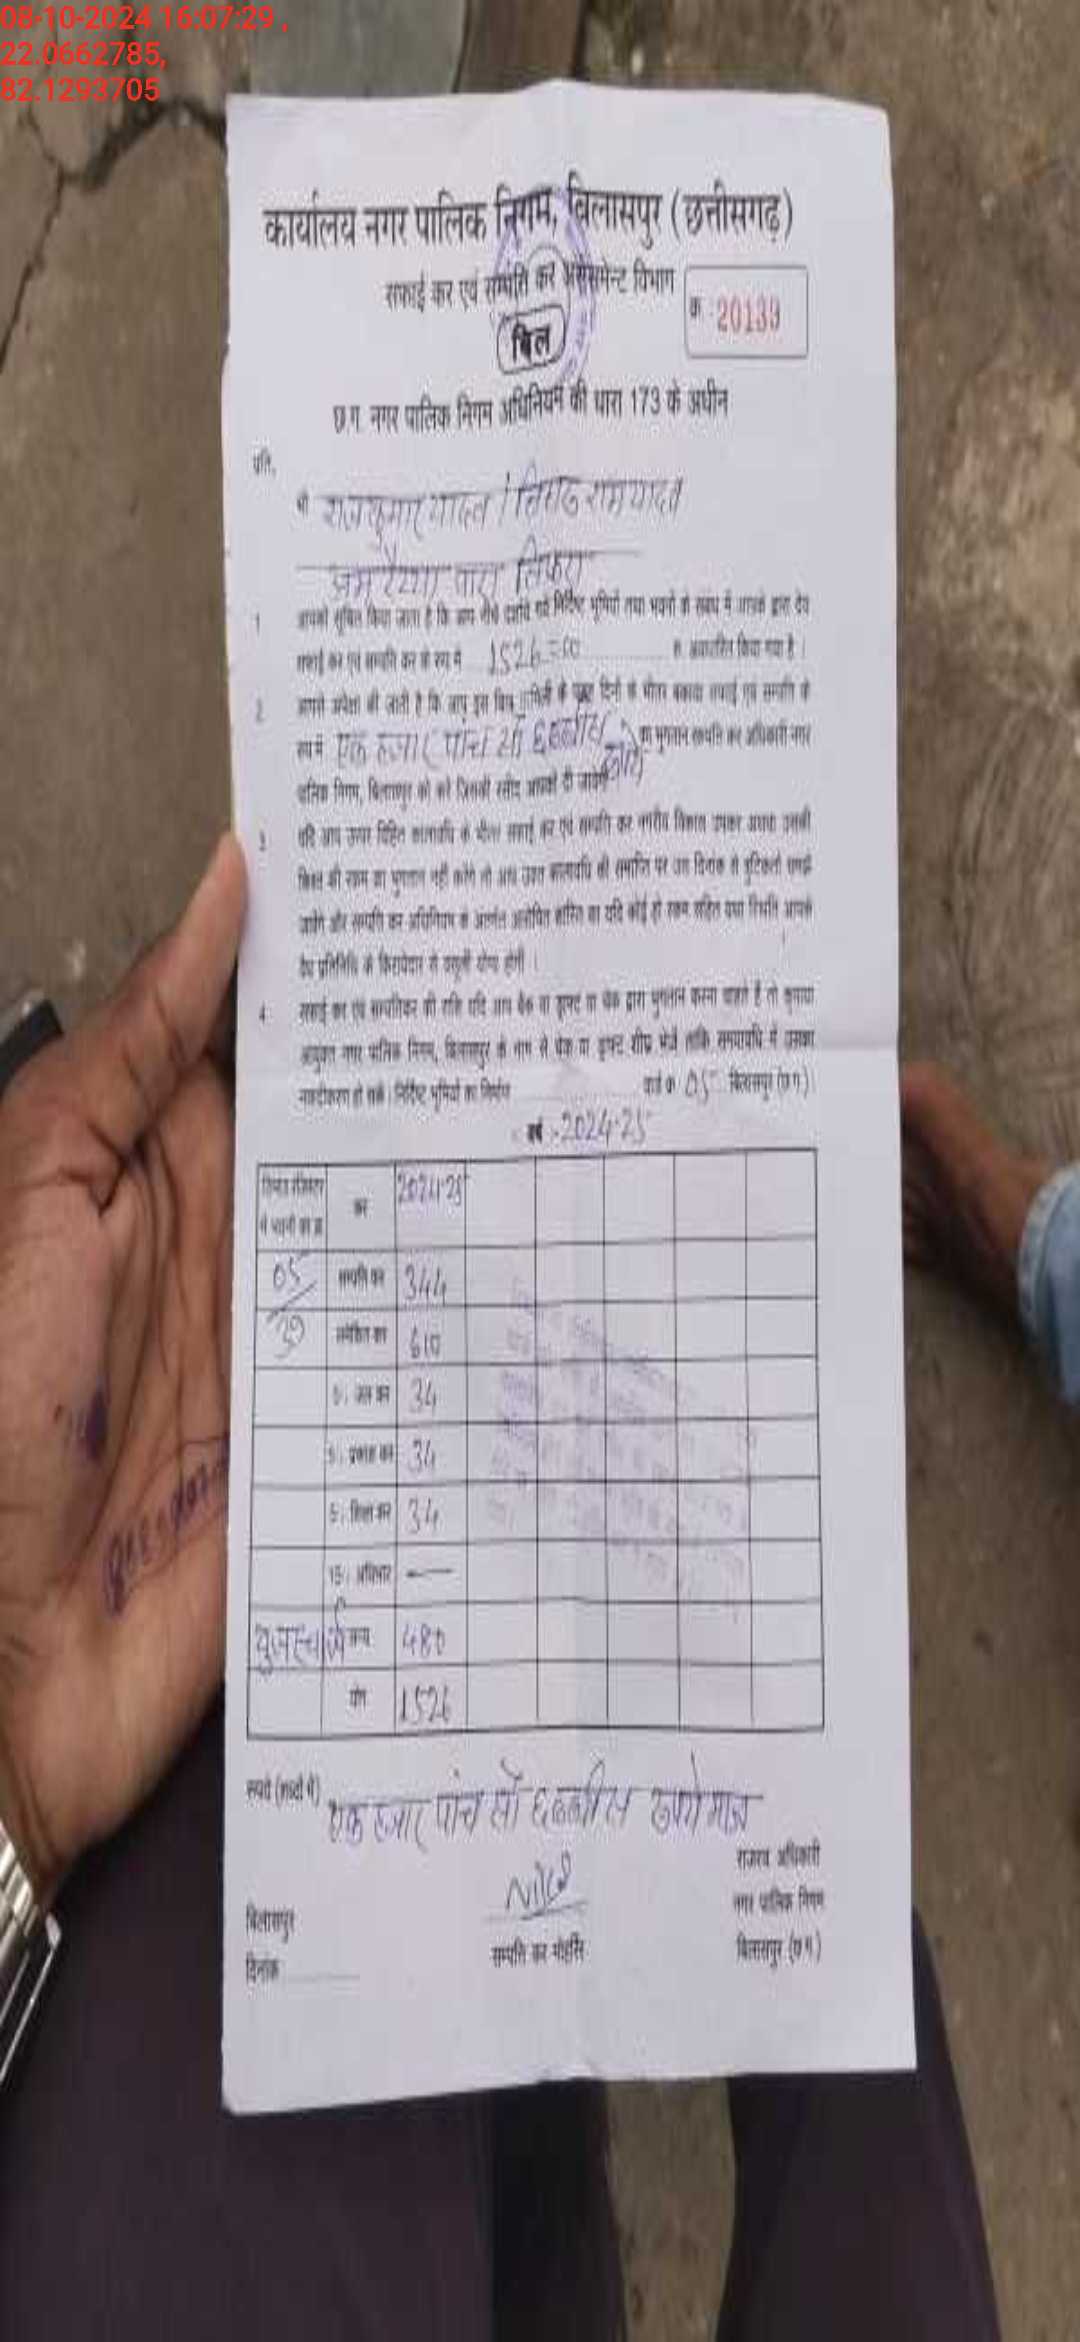 08-10-2024 16:07:29 ,
22.0662785,
82.1293705
कार्यालय नगर पालिक निगम, बिलासपुर (छत्तीसगढ़)
सफाई कर एवं सम्पत्ति कर असेसमेन्ट विभाग
बिल
क्र. 20139
छ.ग. नगर पालिक निगम अधिनियम की धारा 173 के अधीन
प्रति,
श्री राजकुमार यादव / राम यादव
पारा तिफरा
1 आपको सूचित किया जाता है कि आप नीचे दर्शाये गये निर्दिष्ट भूमियों तथा भवनों के संबंध में आपके द्वारा देय
सफाई कर एवं सम्पत्ति कर के रूप में 1526=00 रु. अवधारित किया गया है ।
2 आपसे अपेक्षा की जाती है कि आप इस बिल प्राप्ति के पन्द्रह दिनों के भीतर बकाया सफाई एवं सम्पत्ति के
रूप में एक हजार पांच सौ छब्बीस रूपये का भुगतान सम्पत्ति कर अधिकारी नगर
पालिक निगम, बिलासपुर को करें जिसकी रसीद आपको दी जावेगी
3 यदि आप उपर विहित कालावधि के भीतर सफाई कर एवं सम्पत्ति कर नगरीय विकास उपकर अथवा उसकी
किश्त की रकम का भुगतान नहीं करेंगे तो आप उक्त कालावधि की समाप्ति पर उस दिनांक से त्रुटिकर्ता समझे
जावेंगे और सम्पत्ति कर अधिनियम के अन्तर्गत आरोपित शास्ति का यदि कोई हो रकम सहित यथा स्थिति आपके
देय प्रतिनिधि के किरायेदार से वसूली योग्य होगी ।
4 सफाई कर एवं सम्पत्तिकर की राशि यदि आप बैंक या ड्राफ्ट या चेक द्वारा भुगतान करना चाहते हैं तो कृपया
आयुक्त नगर पालिक निगम, बिलासपुर के नाम से चेक या ड्राफ्ट शीघ्र भेजें ताकि समयावधि में उसका
नकदीकरण हो सके । निर्दिष्ट भूमियों का निर्माण वार्ड क्र. 05 बिलासपुर (छ.ग.)
वर्ष - 2024-25
में भवनों का क्र. कर 2024-25
05 सम्पत्ति कर 344
39 समेकित कर 610
जल कर 34
प्रकाश कर 34
शिक्षा कर 34
अधिभार —
यूजर चार्ज अन्य 480
योग 1526
रूपये (शब्दों में) एक हजार पांच सौ छब्बीस रूपये मात्र
राजस्व अधिकारी
नगर पालिक निगम
बिलासपुर (छ.ग.)
बिलासपुर
दिनांक
सम्पत्ति कर मोहर्रिर